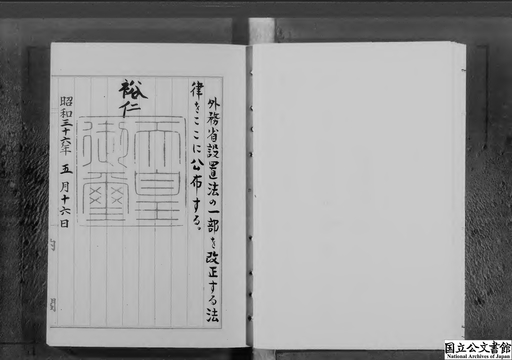 外務省設置法の一部を改正する法
律をここに公布する。
裕仁
天皇
御璽
昭和三十六年五月十六日
国立公文書館
National Archives of Japan